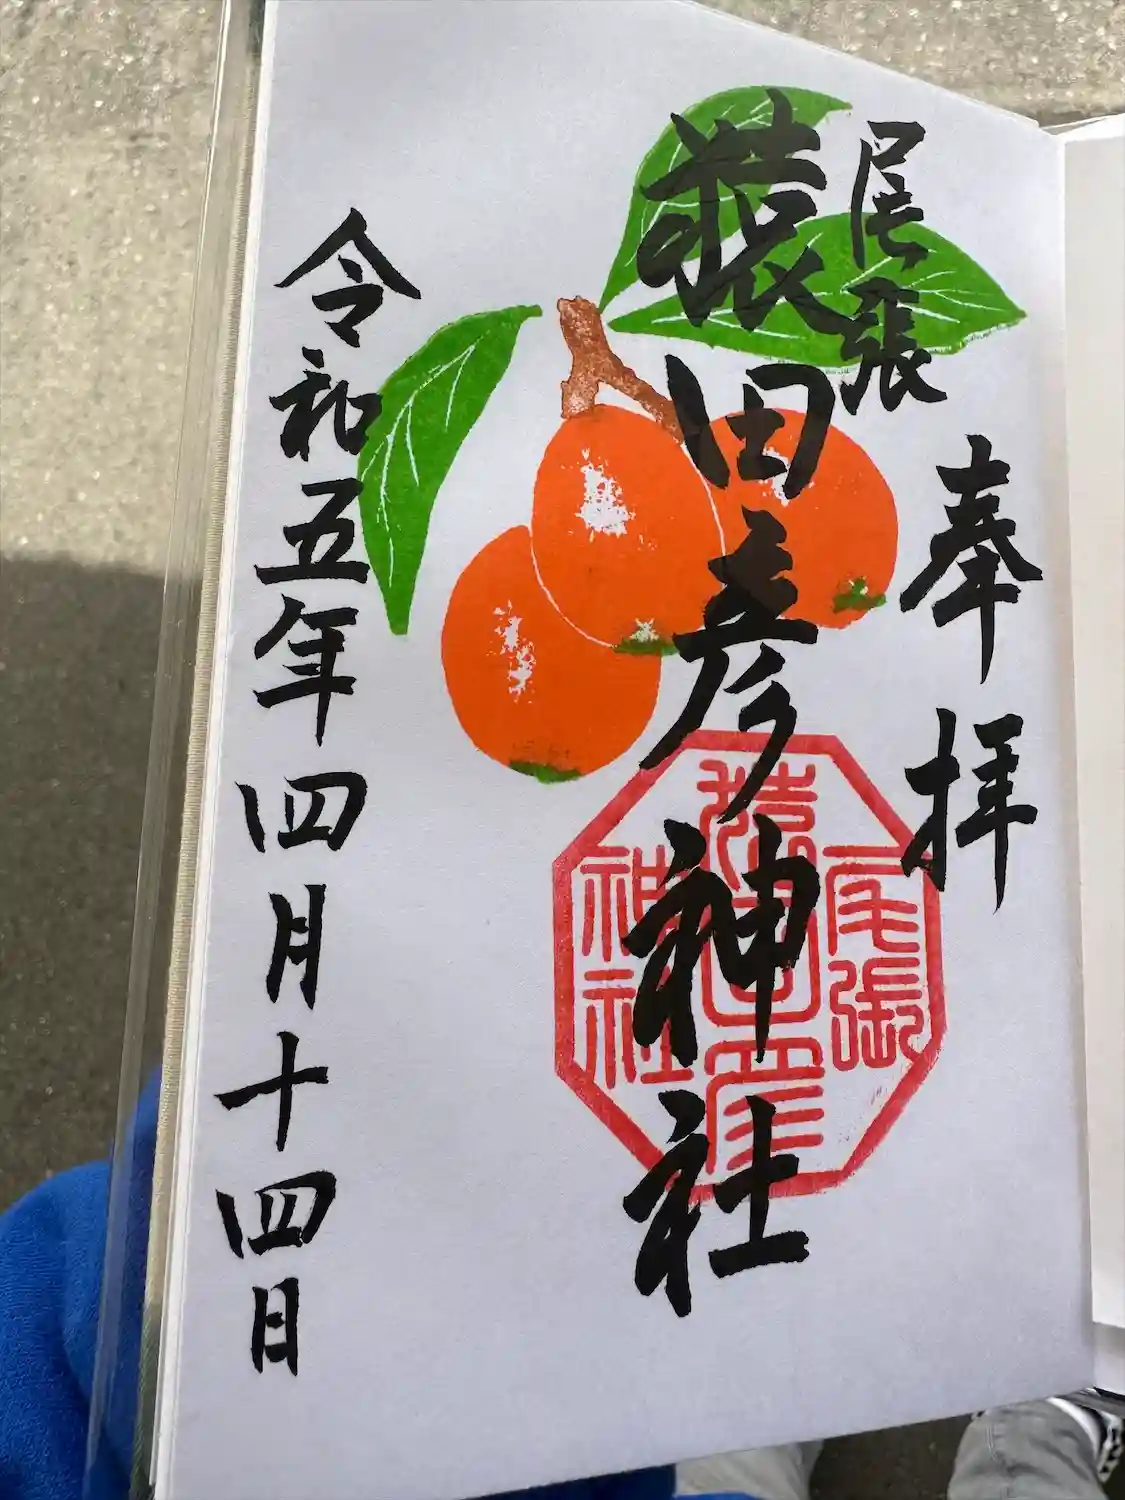 奉拝
尾張
猿田彦神社
令和五年四月十四日
尾張
猿田彦
神社